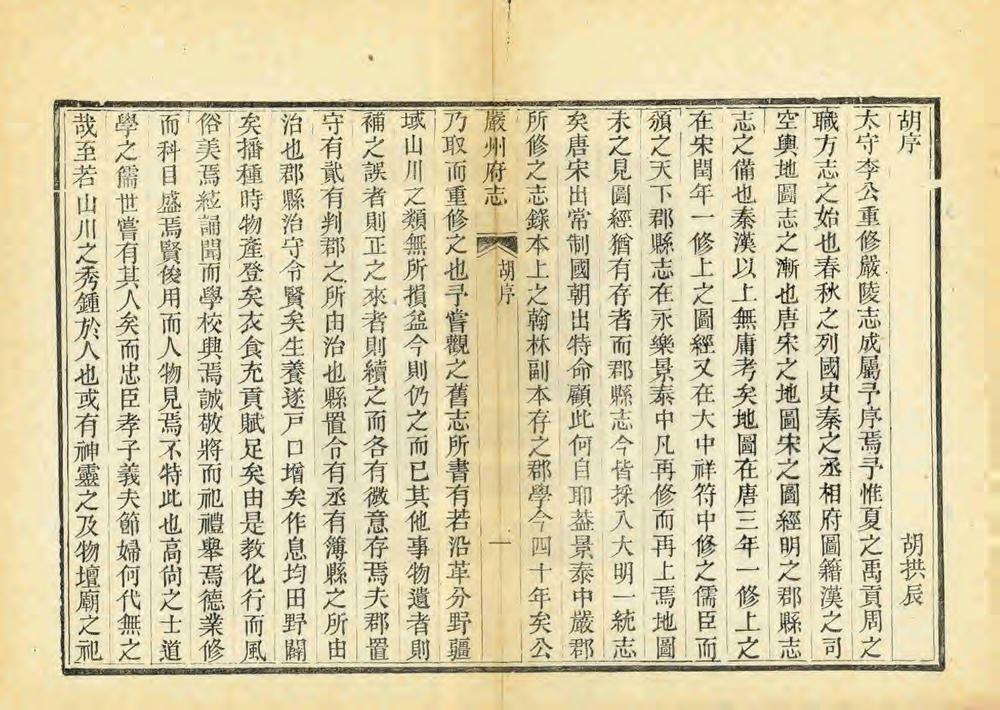 胡序
胡拱辰
太守李公重修嚴陵志成屬予序焉予惟夏之禹貢周之
職方志之始也春秋之列國史秦之丞相府圖籍漢之司
空輿地圖志之漸也唐宋之地圖宋之圖經明之郡縣志
志之備也秦漢以上無庸考矣地圖在唐三年一修上之
在宋閏年一修上之圖經又在大中祥符中修之儒臣而
頒之天下郡縣志在永樂景泰中凡再修而再上焉地圖
未之見圖經猶有存者而郡縣志今皆採入大明一統志
矣唐宋出常制國朝出特命顧此何自耶葢景泰中嚴郡
所修之志錄本上之翰林副本存之郡學今四十年矣公
嚴州府志
胡序
一
乃取而重修之也予嘗觀之舊志所書有若沿革分野疆
域山川之類無所損益今則仍之而已其他事物遺者則
補之誤者則正之來者則續之而各有微意存焉夫郡置
守有貳有判郡之所由治也縣置令有丞有簿縣之所由
治也郡縣治守令賢矣生養遂戸口增矣作息均田野闢
矣播種時物產登矣衣食充貢賦足矣由是教化行而風
俗美焉絃誦聞而學校興焉誠敬將而祀禮舉焉德業修
而科目盛焉賢俊用而人物見焉不特此也高尙之士道
學之儒世嘗有其人矣而忠臣孝子義夫節婦何代無之
哉至若山川之秀鍾於人也或有神靈之及物壇廟之祀